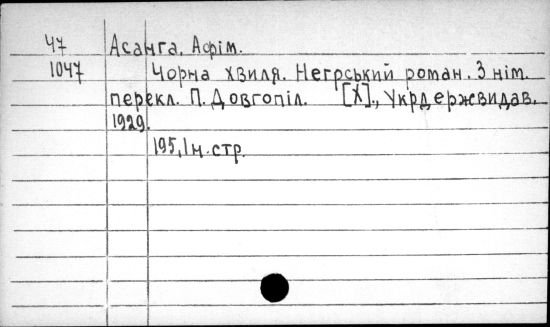 47 Асанга, Афім.
1047 Чорна хвиля. Негрський роман. З нім.
перекл. П. Довгопіл. [Х]., Укрдержвидав,
1929.
195, Iн. стр.